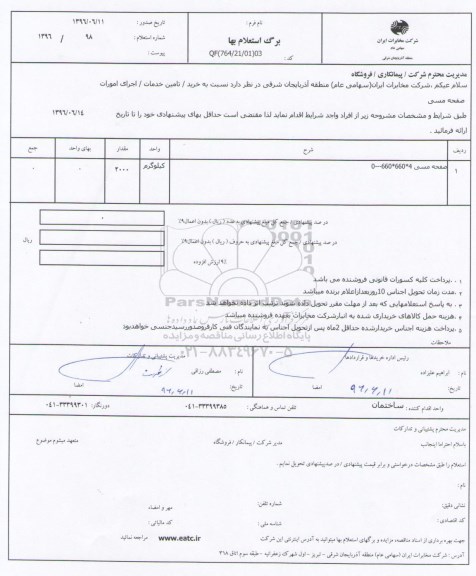 شرکت مخابرات ایران
سهامی عام
منطقه آذربایجان شرقی
نام فرم :
برگ استعلام بها
کد : QF(764/21/01)03
تاریخ صدور : ۱۳۹۶/۰۶/۱۱
شماره استعلام : ۹۸ / ۱۳۹۶
پیوست :
مدیریت محترم شرکت / پیمانکاری / فروشگاه
سلام علیکم .شرکت مخابرات ایران(سهامی عام) منطقه آذربایجان شرقی در نظر دارد نسبت به خرید / تامین خدمات / اجرای امورات
صفحه مسی
طبق شرایط و مشخصات مشروحه زیر از افراد واجد شرایط اقدام نماید لذا مقتضی است حداقل بهای پیشنهادی خود را تا تاریخ ۱۳۹۶/۰۶/۱۴
ارائه فرمائید .
ردیف شرح واحد مقدار بهای واحد جمع
۱ صفحه مسی 4*660*660---0 کیلوگرم ۲۰۰۰ ۰ ۰
در صد پیشنهادی / جمع کل مبلغ پیشنهادی به عدد ( ریال ) بدون اعمال۹%
در صد پیشنهادی / جمع کل مبلغ پیشنهادی به حروف ( ریال ) بدون اعمال۹% ریال
۹%ارزش افزوده
۱. پرداخت کلیه کسورات قانونی فروشنده می باشد
۲. مدت زمان تحویل اجناس 10روزبعدازاعلام برنده میباشد
۳. به پاسخ استعلامهایی که بعد از مهلت مقرر تحویل داده شوند ترتیب اثر داده نخواهد شد
۴. هزینه حمل کالاهای خریداری شده به انبارشرکت مخابرات بعهده فروشنده میباشد
۵. پرداخت هزینه اجناس خریدارشده حداقل 2ماه پس ازتحویل اجناس به نمایندگان فنی کارفرماودوررسیدجنسی خواهدبود
ملاحظات
پایگاه اطلاع رسانی مناقصه و مزایده
۰۲۱-۸۸۳۴۹۶۷۰-۵
رئیس اداره خریدها و قراردادها
ابراهیم علیزاده
تاریخ: ۹۶,۶,۱۱ امضا
مدیریت پشتیبانی و تدارکات
مصطفی رزاقی
تاریخ: ۹۶,۶,۱۱ امضا
واحد اقدام کننده : ساختمان تلفن تماس و هماهنگی : ۰۴۱-۳۳۳۹۹۳۸۵ دورنگار: ۰۴۱-۳۳۳۹۹۳۰۱
مدیریت محترم پشتیبانی و تدارکات
باسلام احتراما اینجانب مدیر شرکت / پیمانکار / فروشگاه متعهد میشوم موضوع
استعلام را طبق مشخصات درخواستی و برابر قیمت پیشنهادی / در صدپیشنهادی تحویل نمایم.
نام :
نشانی دقیق: شماره تلفن: مهر و امضاء
کد اقتصادی : شناسه ملی : کد مالیاتی :
جهت بهره برداری از اسناد مناقصه، مزایده و برگهای استعلام بها میتوانید به آدرس اینترنتی این شرکت www.eatc.ir مراجعه نمائید
آدرس : شرکت مخابرات ایران (سهامی عام) منطقه آذربایجان شرقی - تبریز - اول شهرک زعفرانیه -طبقه سوم اتاق ۳۱۸